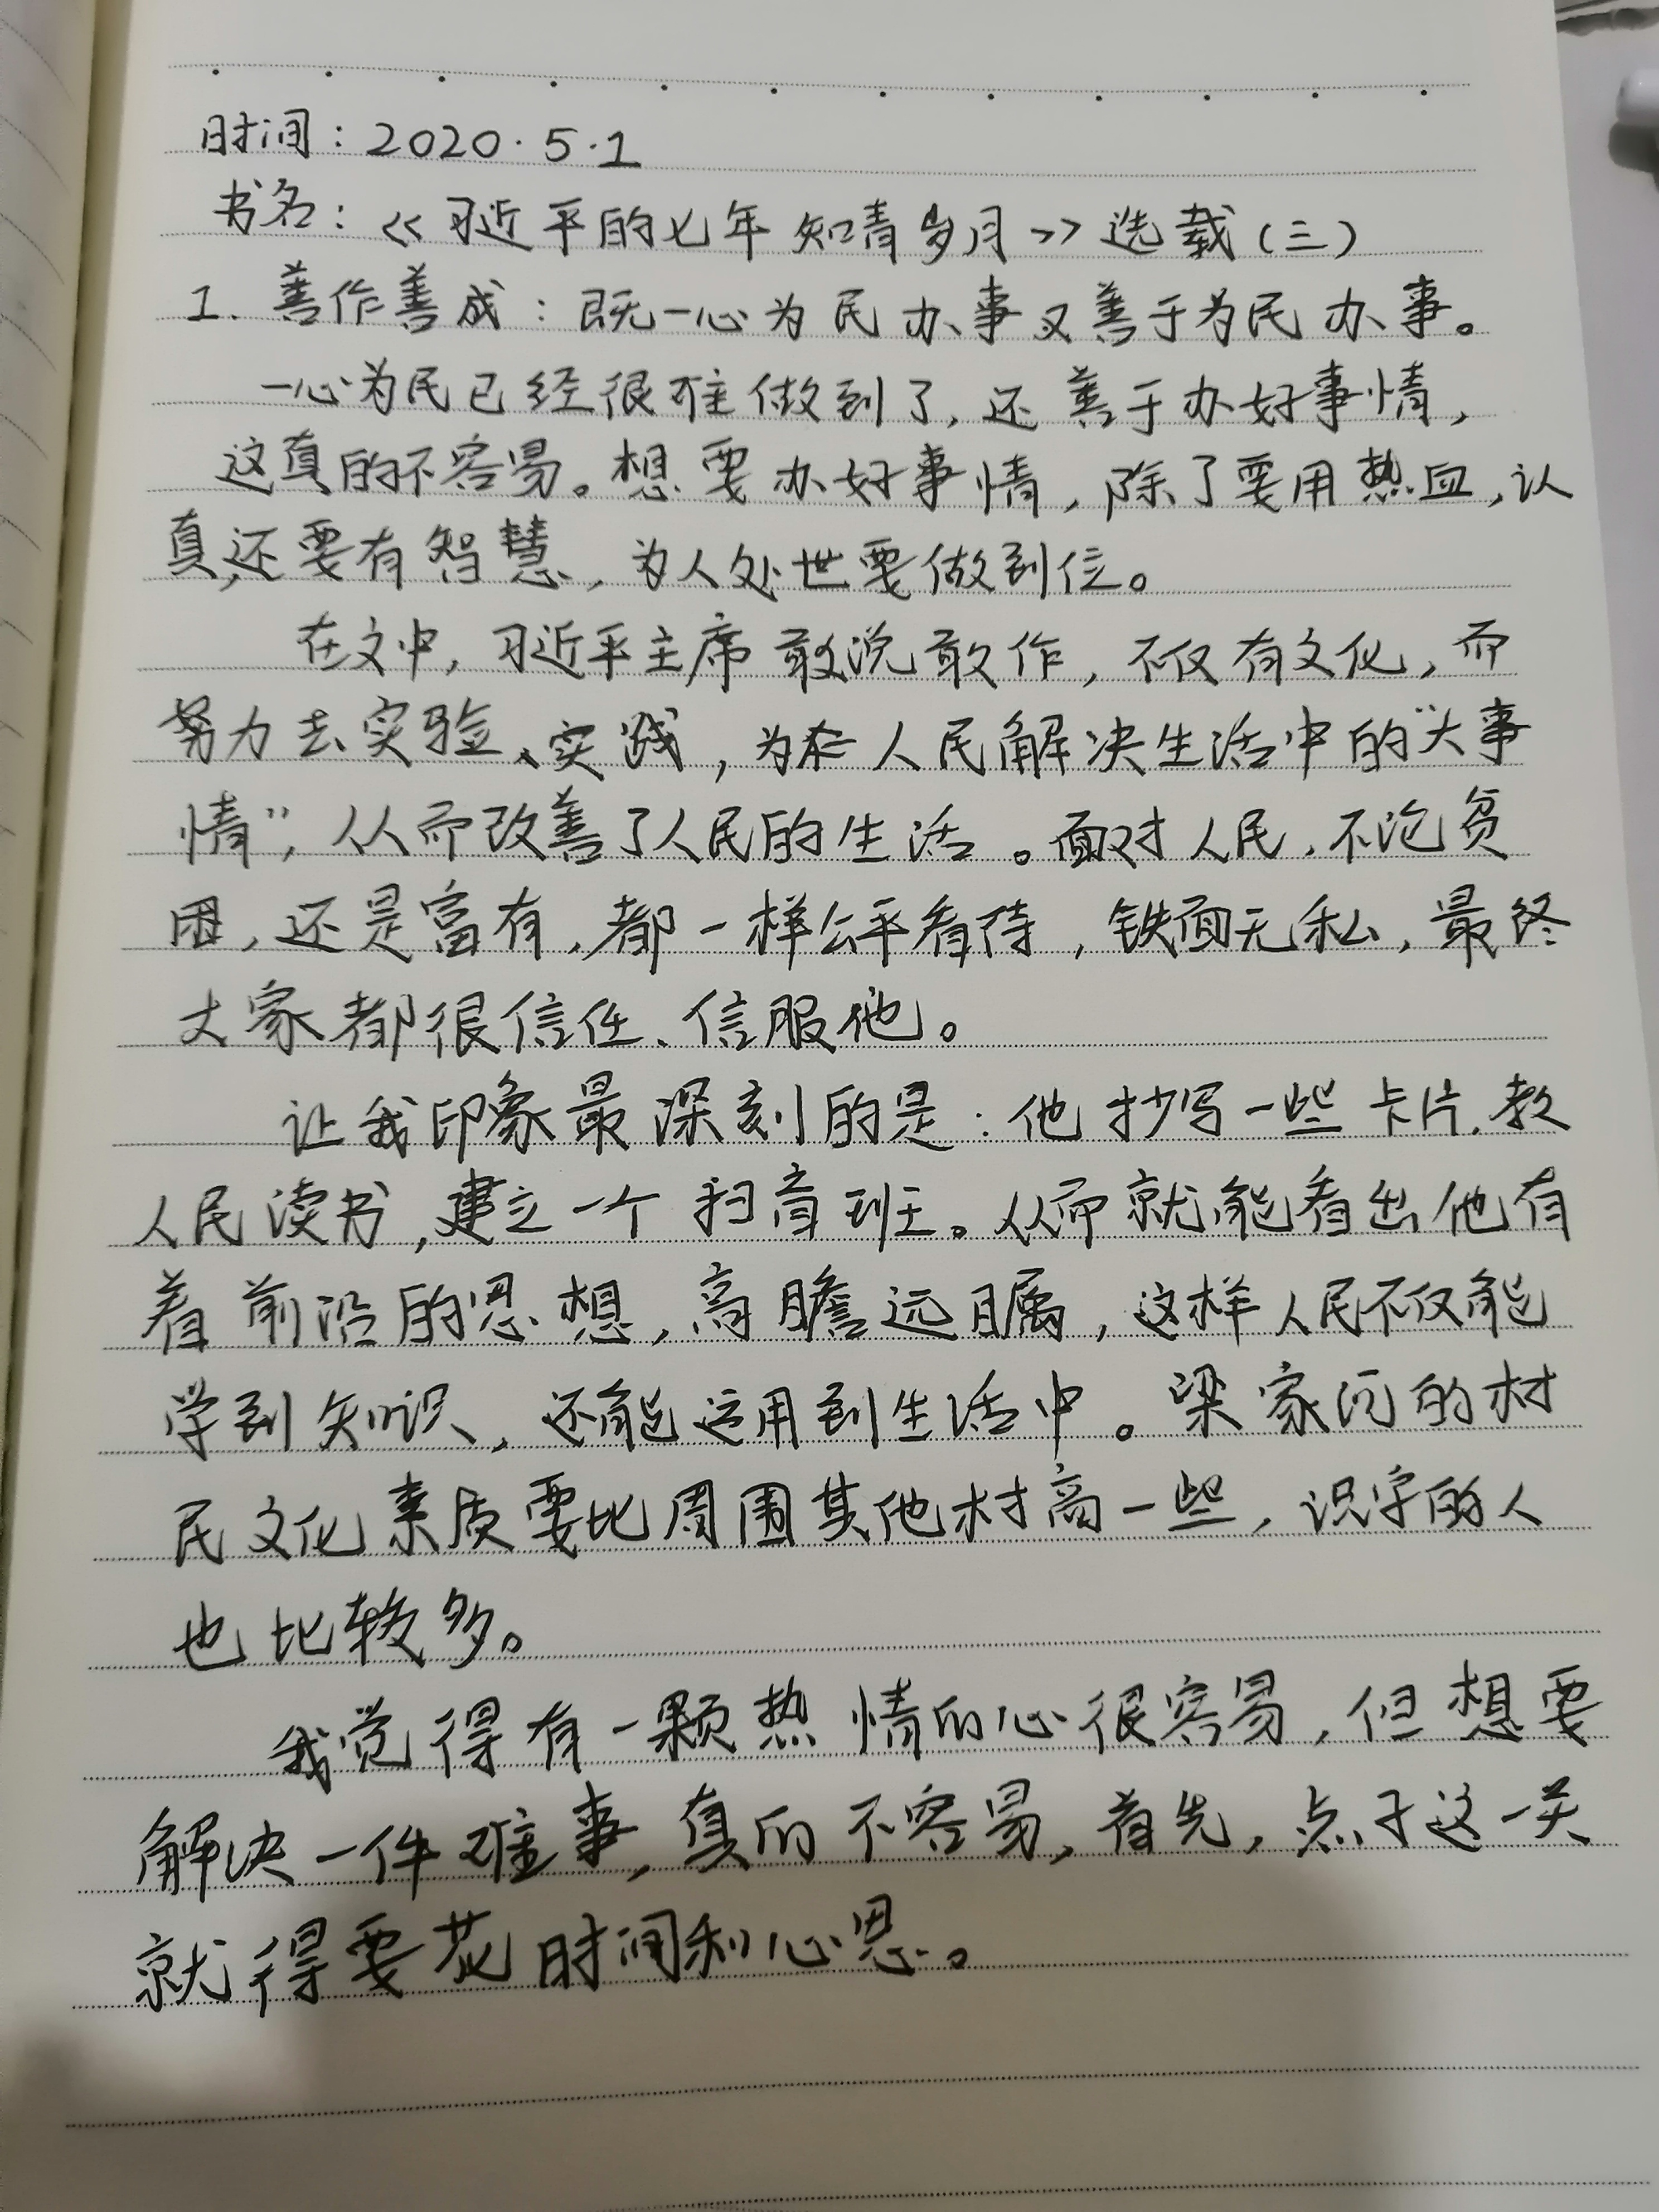 时间：2020.5.1
书名：《习近平的七年知青岁月》选载(三)
1.善作善成：既一心为民办事又善于为民办事。
一心为民已经很难做到了，还善于办好事情，
这真的不容易。想要办好事情，除了要用热血，认
真，还要有智慧，为人处世要做到位。
在文中，习近平主席敢说敢作，不仅有文化，而
努力去实验、实践，为 人民解决生活中的“大事
情”，从而改善了人民的生活。面对人民，不论贫
困，还是富有，都一样公平看待，铁面无私，最终
大家都很信任、信服他。
让我印象最深刻的是：他抄写一些卡片，教
人民读书，建立一个扫盲班。从而就能看出他有
着前沿的思想，高瞻远瞩，这样人民不仅能
学到知识，还能运用到生活中。梁家河的村
民文化素质要比周围其他村高一些，识字的人
也比较多。
我觉得有一颗热情的心很容易，但想要
解决一件难事，真的不容易，首先，点子这一关
就得要花时间和心思。